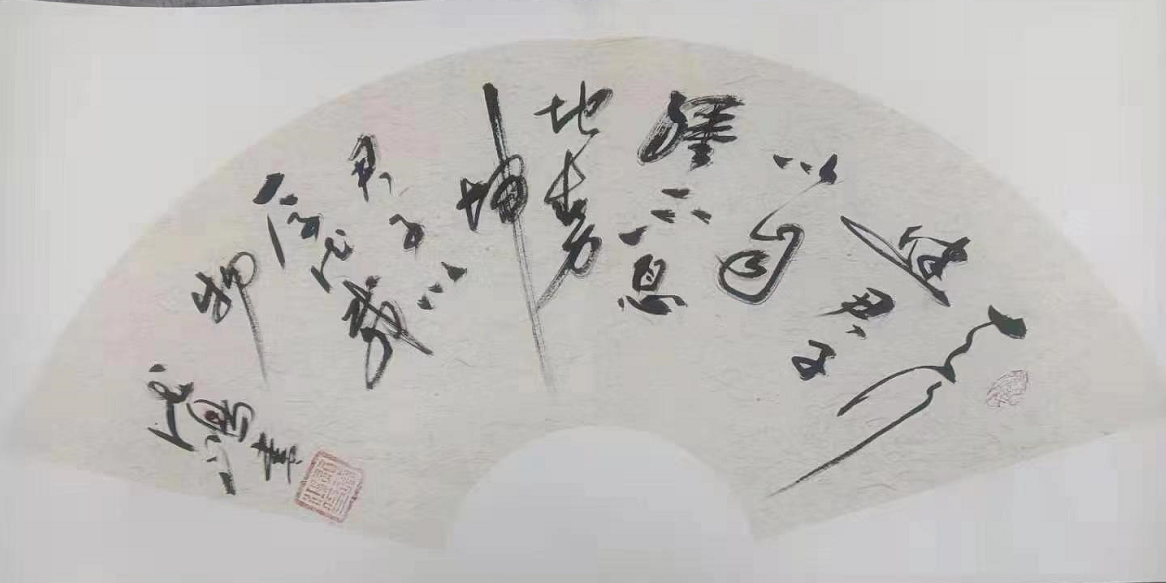 天行
健君子
以自
强不息
地势
坤
君子以
厚德载
物